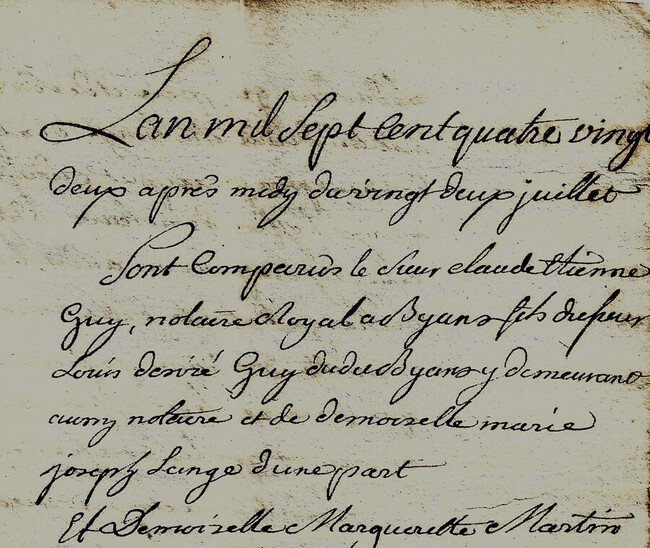 Lan mil Sept Cent quatre vingt
deux après midy du vingt deux juillet
Sont Comparus le sieur claude Etienne
Guy, notaire Royal a Byans fils du sieur
Louis desiré Guy dudit Byans y demeurant
aussy notaire et de demoiselle marie
joseph Lange dune part
Et Demoiselle Margueritte Martin